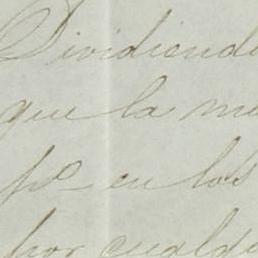 Dividiendo
que la m
pº en los
por cualq